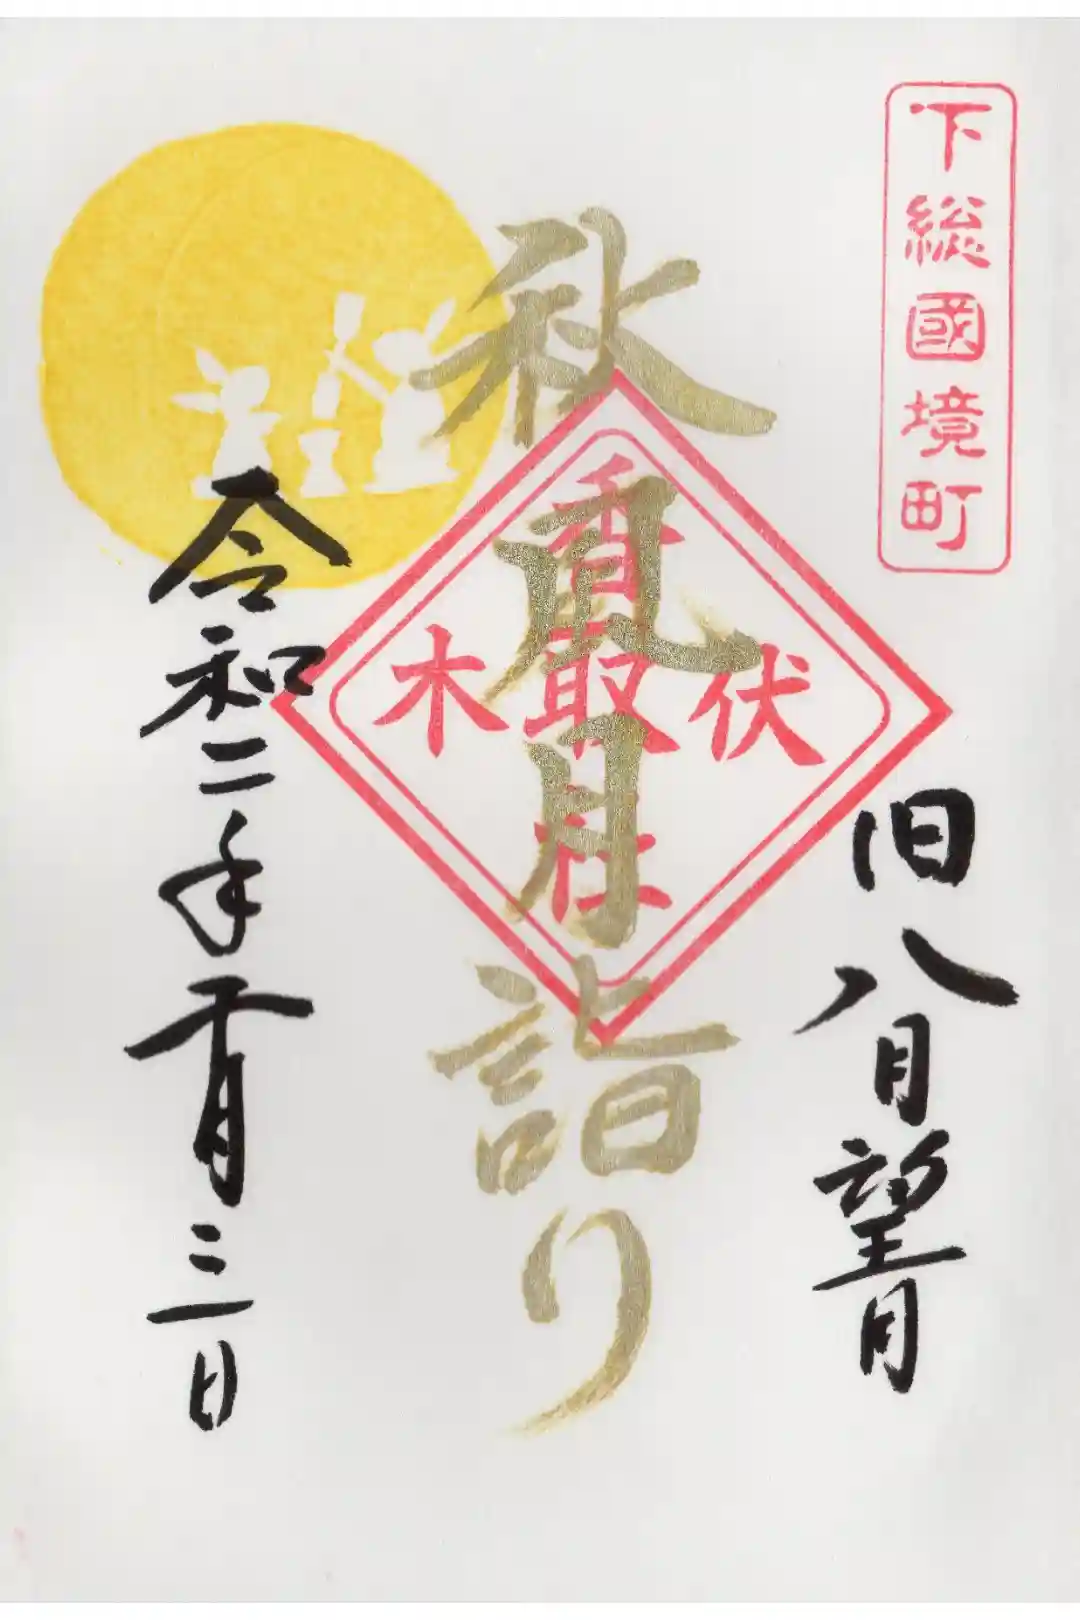 下総國境町
旧八月望月
秋 月詣り
伏木
香取社
令和二年十月三日